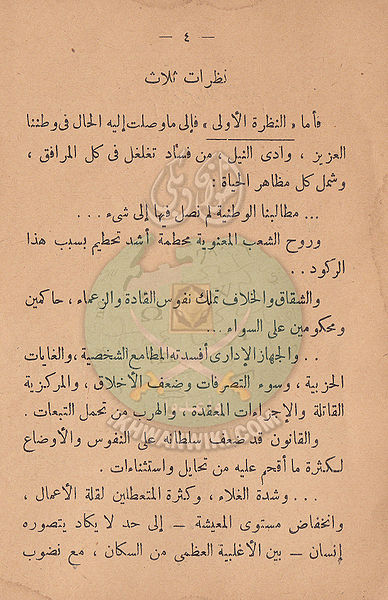 — ٤ —
نظرات ثلاث
فأما « النظرة الأولى » فإلى ما وصلت إليه الحال فى وطننا
العزيز ، وادى النيل ، من فساد تغلغل فى كل المرافق ،
وشمل كل مظاهر الحياة :
... مطالبنا الوطنية لم نصل فيها إلى شىء ...
وروح الشعب المعنوية محطمة أشد تحطيم بسبب هذا
الركود ..
والشقاق والخلاف تملك نفوس القادة والزعماء ، حاكمين
ومحكومين على السواء ...
.. والجهاز الإدارى أفسدته المطامع الشخصية ، والغايات
الحزبية ، وسوء التصرفات وضعف الأخلاق ، والمركزية
القاتلة والإجراءات المعقدة ، والهرب من تحمل التبعات .
والقانون قد ضعف سلطانه على النفوس والأوضاع
لكثرة ما أقحم عليه من تحايل واستثناءات .
... وشدة الغلاء ، وكثرة المتعطلين لقلة الأعمال ،
وانخفاض مستوى المعيشة — إلى حد لا يكاد يتصوره
إنسان — بين الأغلبية العظمى من السكان ، مع نضوب
IKHWANWIKI.COM